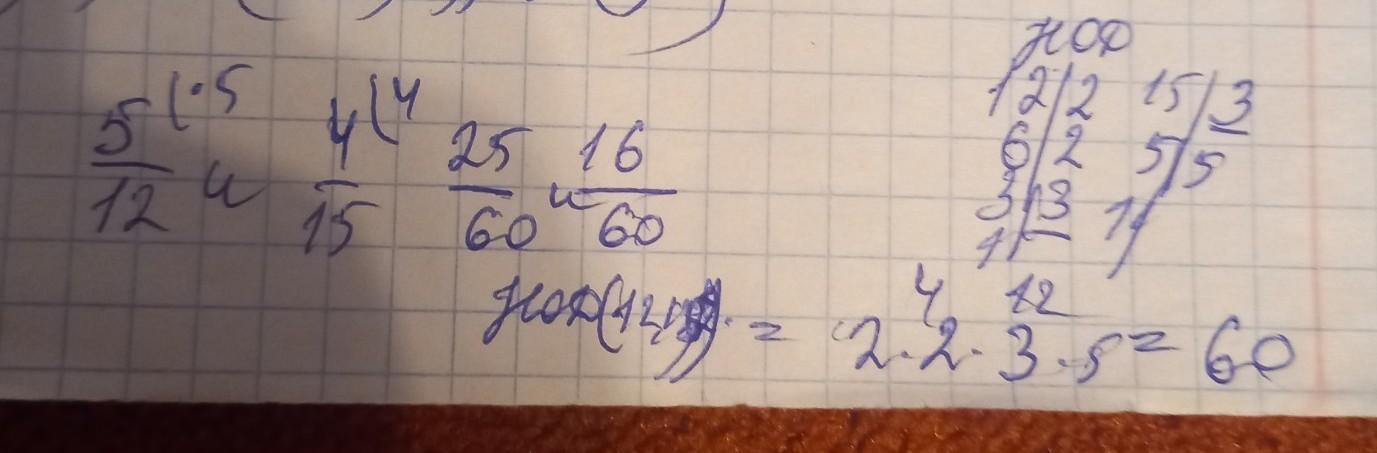 НОД
12|2 15|3
6|2 5|5
3|3 1|
1|
5/12 (·5 и 4/15 (4 25/60 и 16/60
НОД(12, = 2·2·3·5=60
4 12